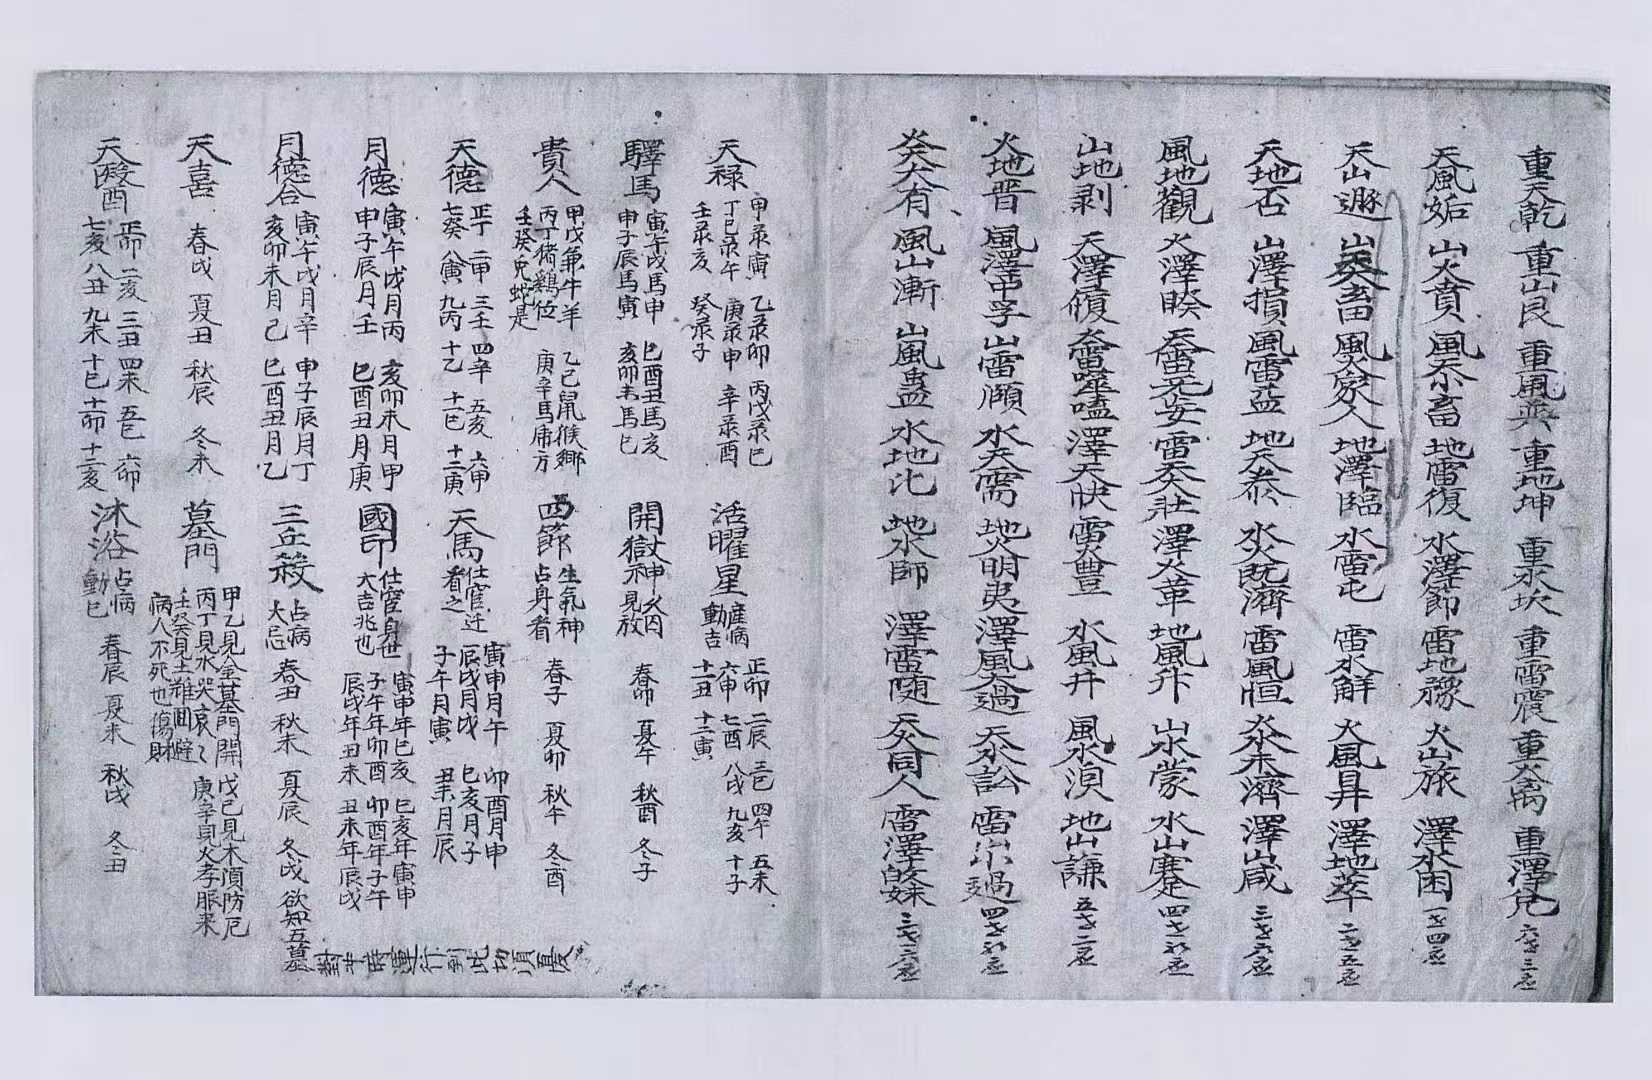 重天乾 重山艮 重風巽 重地坤 重水坎 重雷震 重火离 重澤兌 六世三应
天風姤 山火賁 風天小畜 地雷復 水澤節 雷地豫 火山旅 澤水困 一世四应
天山遯 山天大畜 風火家人 地澤臨 水雷屯 雷水解 火風鼎 澤地萃 二世五应
天地否 山澤損 風雷益 地天泰 水火既濟 雷風恒 火水未濟 澤山咸 三世六应
風地觀 火澤睽 天雷无妄 雷天大壯 澤火革 地風升 山水蒙 水山蹇 四世初应
山地剥 天澤履 火雷噬嗑 澤天夬 雷火豊 水風井 風水渙 地山謙 五世二应
火地晋 風澤中孚 山雷頤 水天需 地火明夷 澤風大過 天水訟 雷山小過 四世初应
火天大有 風山漸 山風蠱 水地比 地水師 澤雷随 天火同人 雷澤归妹 三世六应
天禄 甲录寅 乙录卯 丙戊录巳
丁巳录午 庚录申 辛录酉
壬录亥 癸录子
活曜星 占病動吉 正卯 二辰 三巳 四午 五未
六申 七酉 八戌 九亥 十子
十一丑 十二寅
驛馬 寅午戌馬申 巳酉丑馬亥
申子辰馬寅 亥卯未馬巳
開獄神 囚見放 春卯 夏午 秋酉 冬子
貴人 甲戊兼牛羊 乙己鼠猴鄉
丙丁猪鷄位 庚辛馬虎方
壬癸兎蛇是
西節 生氣神占身看 春子 夏卯 秋午 冬酉
天德 正丁 二申 三壬 四辛 五亥 六甲
七癸 八寅 九丙 十乙 十一巳 十二庚
天馬 仕官迁看之 寅申月午 卯酉月申
辰戌月戌 巳亥月子
子午月寅 丑未月辰
月德 寅午戌月丙 亥卯未月甲
申子辰月壬 巳酉丑月庚
國印 仕官身世大吉兆也 寅申年巳亥 巳亥年寅申
子午年卯酉 卯酉年子午
辰戌年丑未 丑未年辰戌
月德合 寅午戌月辛 申子辰月丁
亥卯未月己 巳酉丑月乙
三丘殺 占病大忌 春丑 秋未 夏辰 冬戌 欲知五墓
對平時運行到此切須憂
天喜 春戌 夏丑 秋辰 冬未
墓門 甲乙見金墓門開 戊己見木須防厄
丙丁見水哭哀哀 庚辛見火孝服来
壬癸見土难回避
病人不死也傷財
天醫 正卯 二亥 三丑 四未 五巳 六卯
七亥 八丑 九未 十巳 十一卯 十二亥
沐浴 占病動巳 春辰 夏未 秋戌 冬丑